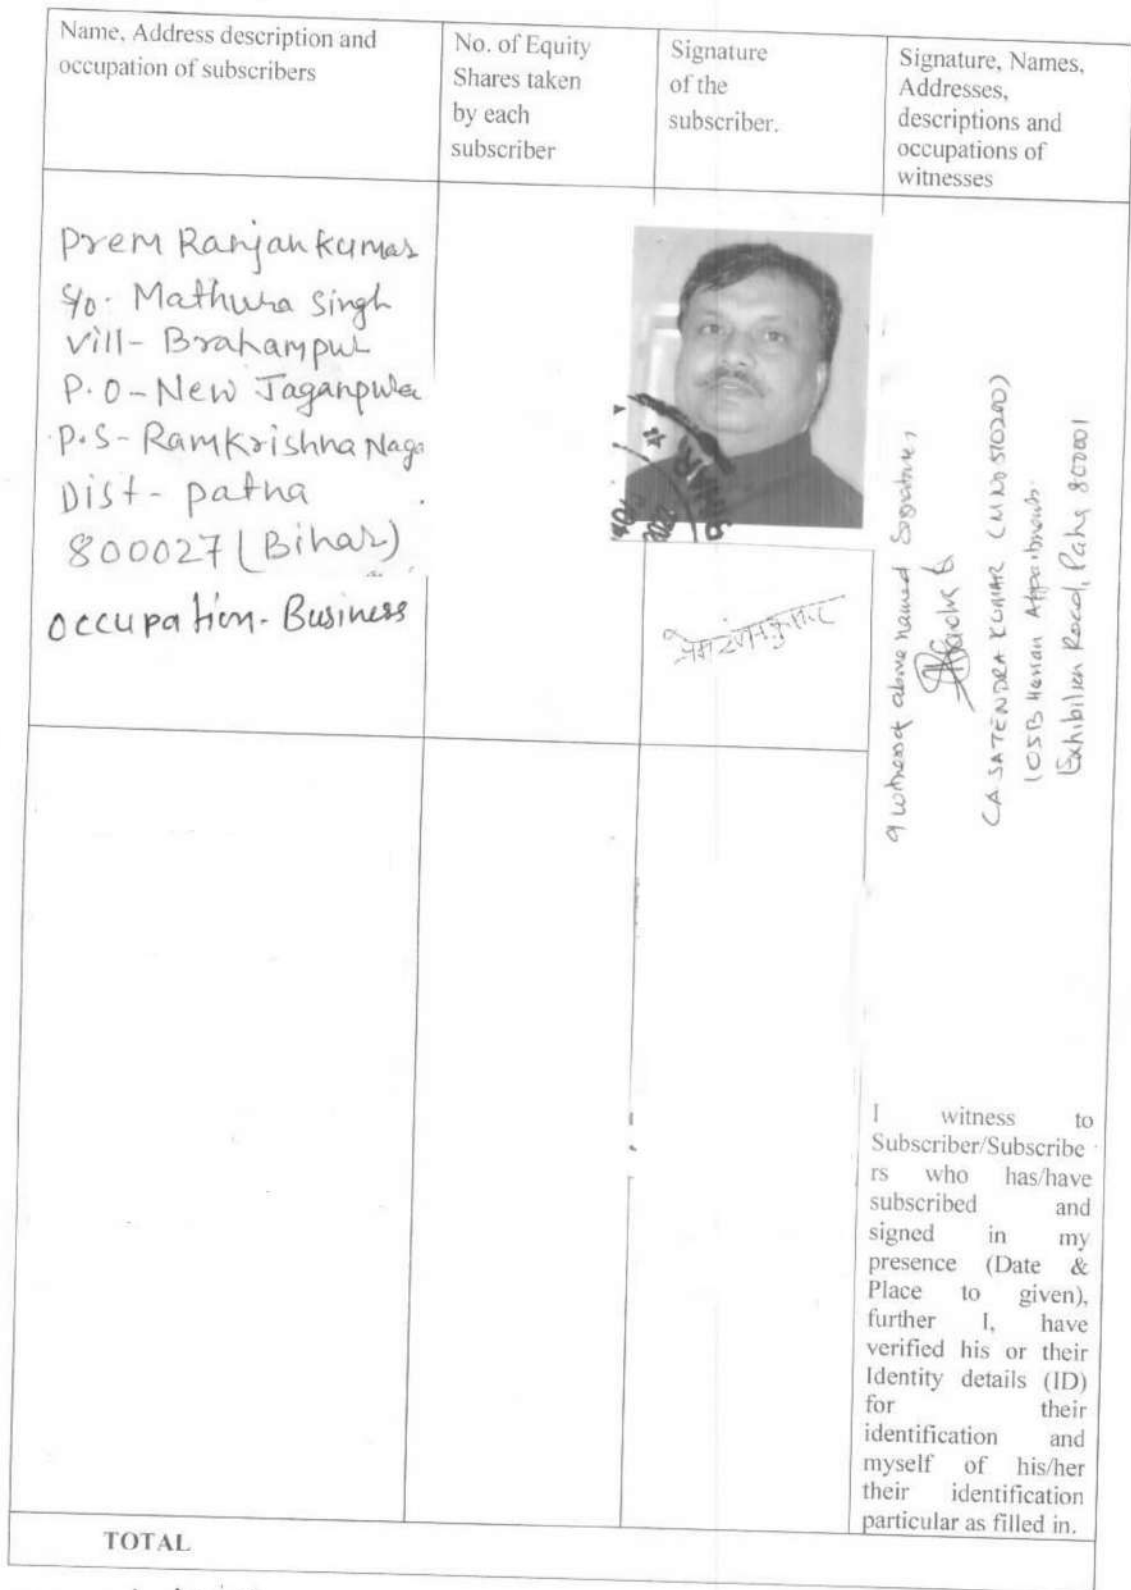 Name, Address description and
occupation of subscribers
No. of Equity
Shares taken
by each
subscriber
Signature
of the
subscriber.
Signature, Names,
Addresses,
descriptions and
occupations of
witnesses
Prem Ranjan kumar
S/o. Mathura Singh
Vill- Brahampur
P.O- New Jaganpura
P.S- RamKrishna Naga
Dist- patna
800027 (Bihar)
occupation- Business
प्रेम रंजन कुमार
above named
CA SATENDRA KUMAR (M NO 510200)
105B
Exhibition Road, Patna 800001
I witness to
Subscriber/Subscribe
rs who has/have
subscribed and
signed in my
presence (Date &
Place to given),
further I, have
verified his or their
Identity details (ID)
for their
identification and
myself of his/her
their identification
particular as filled in.
TOTAL